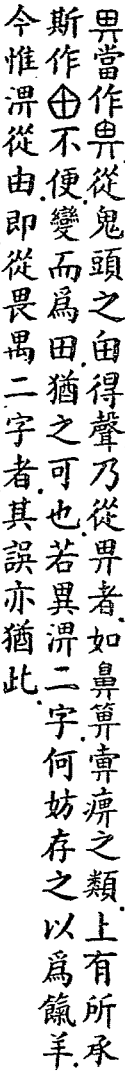 畀當作畁從鬼頭之甶得聲乃從畀者如鼻箅𢍁痹之類上有所承
斯作⊕不便變而爲田猶之可也若異渒二字何妨存之以爲餼羊
今惟淠從由即從畏禺二字者其誤亦猶此